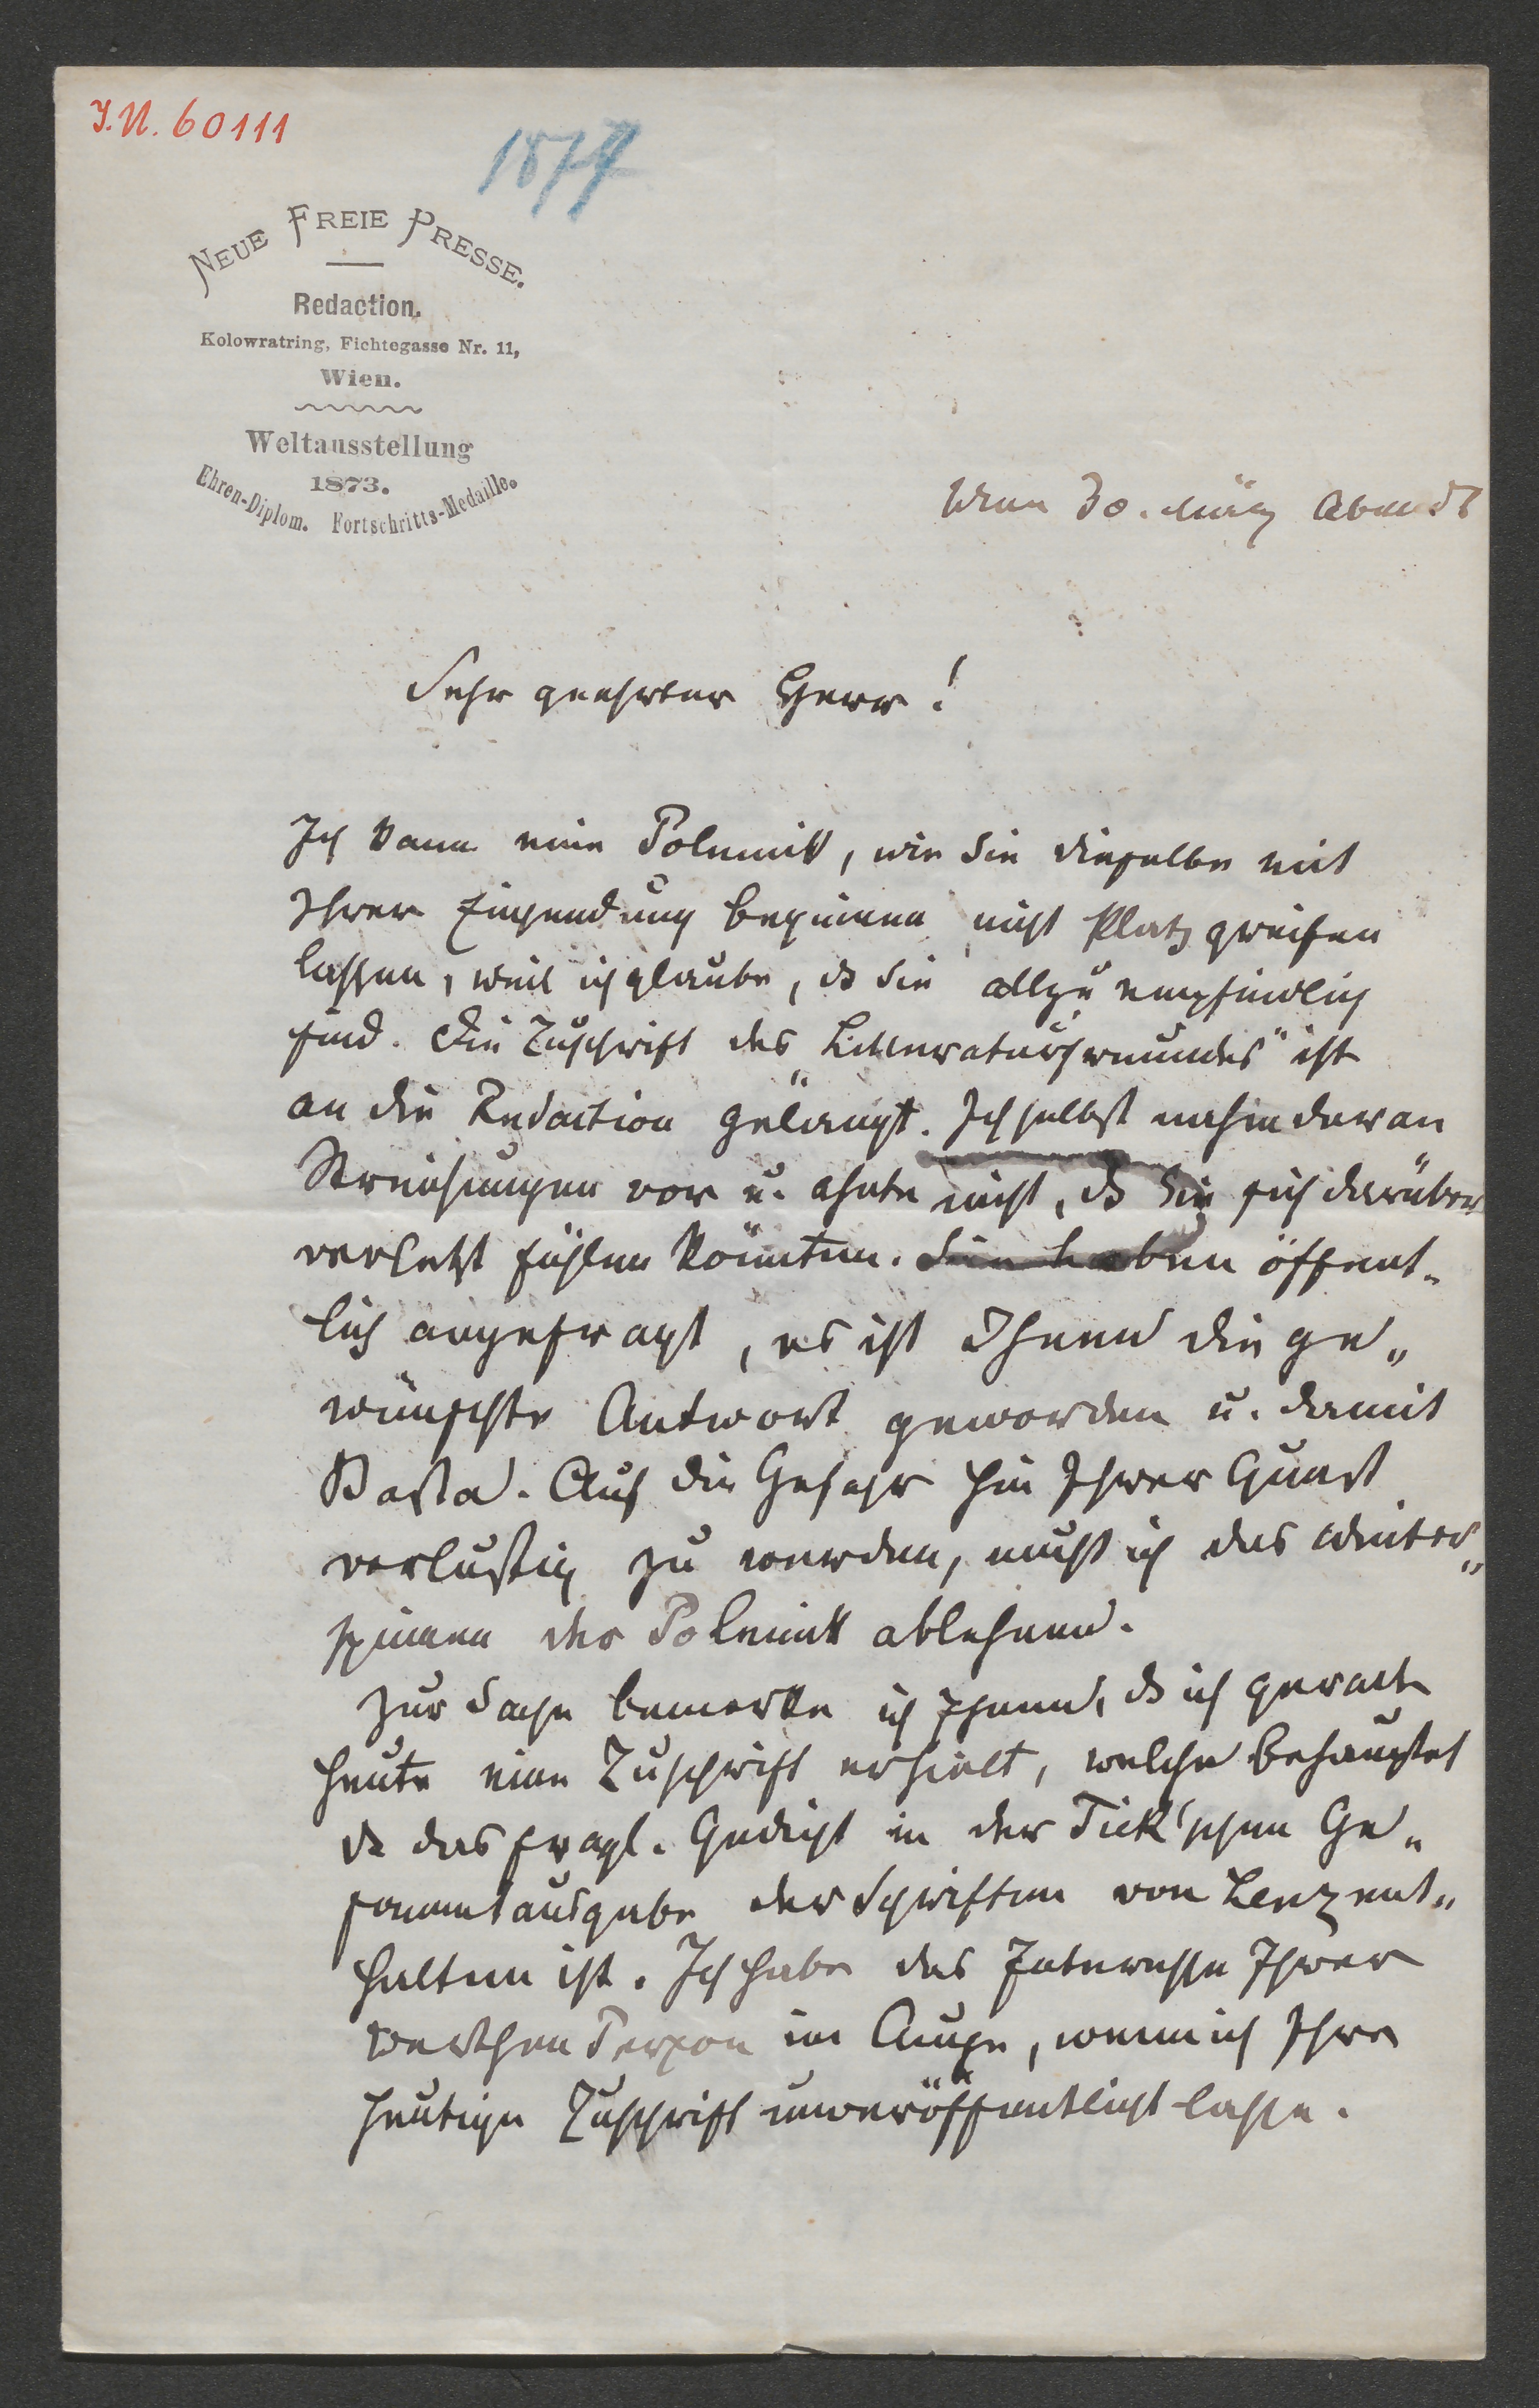 I.N. 60111
1877
NEUE FREIE PRESSE.
Redaction.
Kolowratring, Fichtegasse Nr. 11,
Wien.
Weltausstellung
1873.
Ehren-Diplom. Fortschritts-Medaille.
Wien 30. März Abends
Sehr geehrter Herr!
Ich kann eine Polemik, wie Sie dieselbe mit
Ihrer Einsendung beginnen nicht Platz greifen
lassen, weil ich glaube, daß Sie allzu empfindlich
sind. Die Zuschrift des „Litteraturfreundes“ ist
an die Redaction gelangt. Ich selbst nahm daran
Streichungen vor u. ahnte nicht, daß Sie sich darüber
verletzt fühlen könnten. Sie haben öffent-
lich angefragt, es ist Ihnen die ge-
wünschte Antwort geworden u. damit
Basta. Auf die Gefahr hin Ihrer Gunst
verlustig zu werden, muß ich das Weiter-
spinnen der Polemik ablehnen.
Zur Sache bemerke ich Ihnen, daß ich gerade
heute eine Zuschrift erhielt, welche behauptet
daß das fragl. Gedicht in der Tiek'schen Ge-
sammtausgabe der Schriften von Lenz ent-
halten ist. Ich habe das Interesse Ihrer
werthen Person im Auge, wenn ich Ihre
heutige Zuschrift unveröffentlicht lasse.